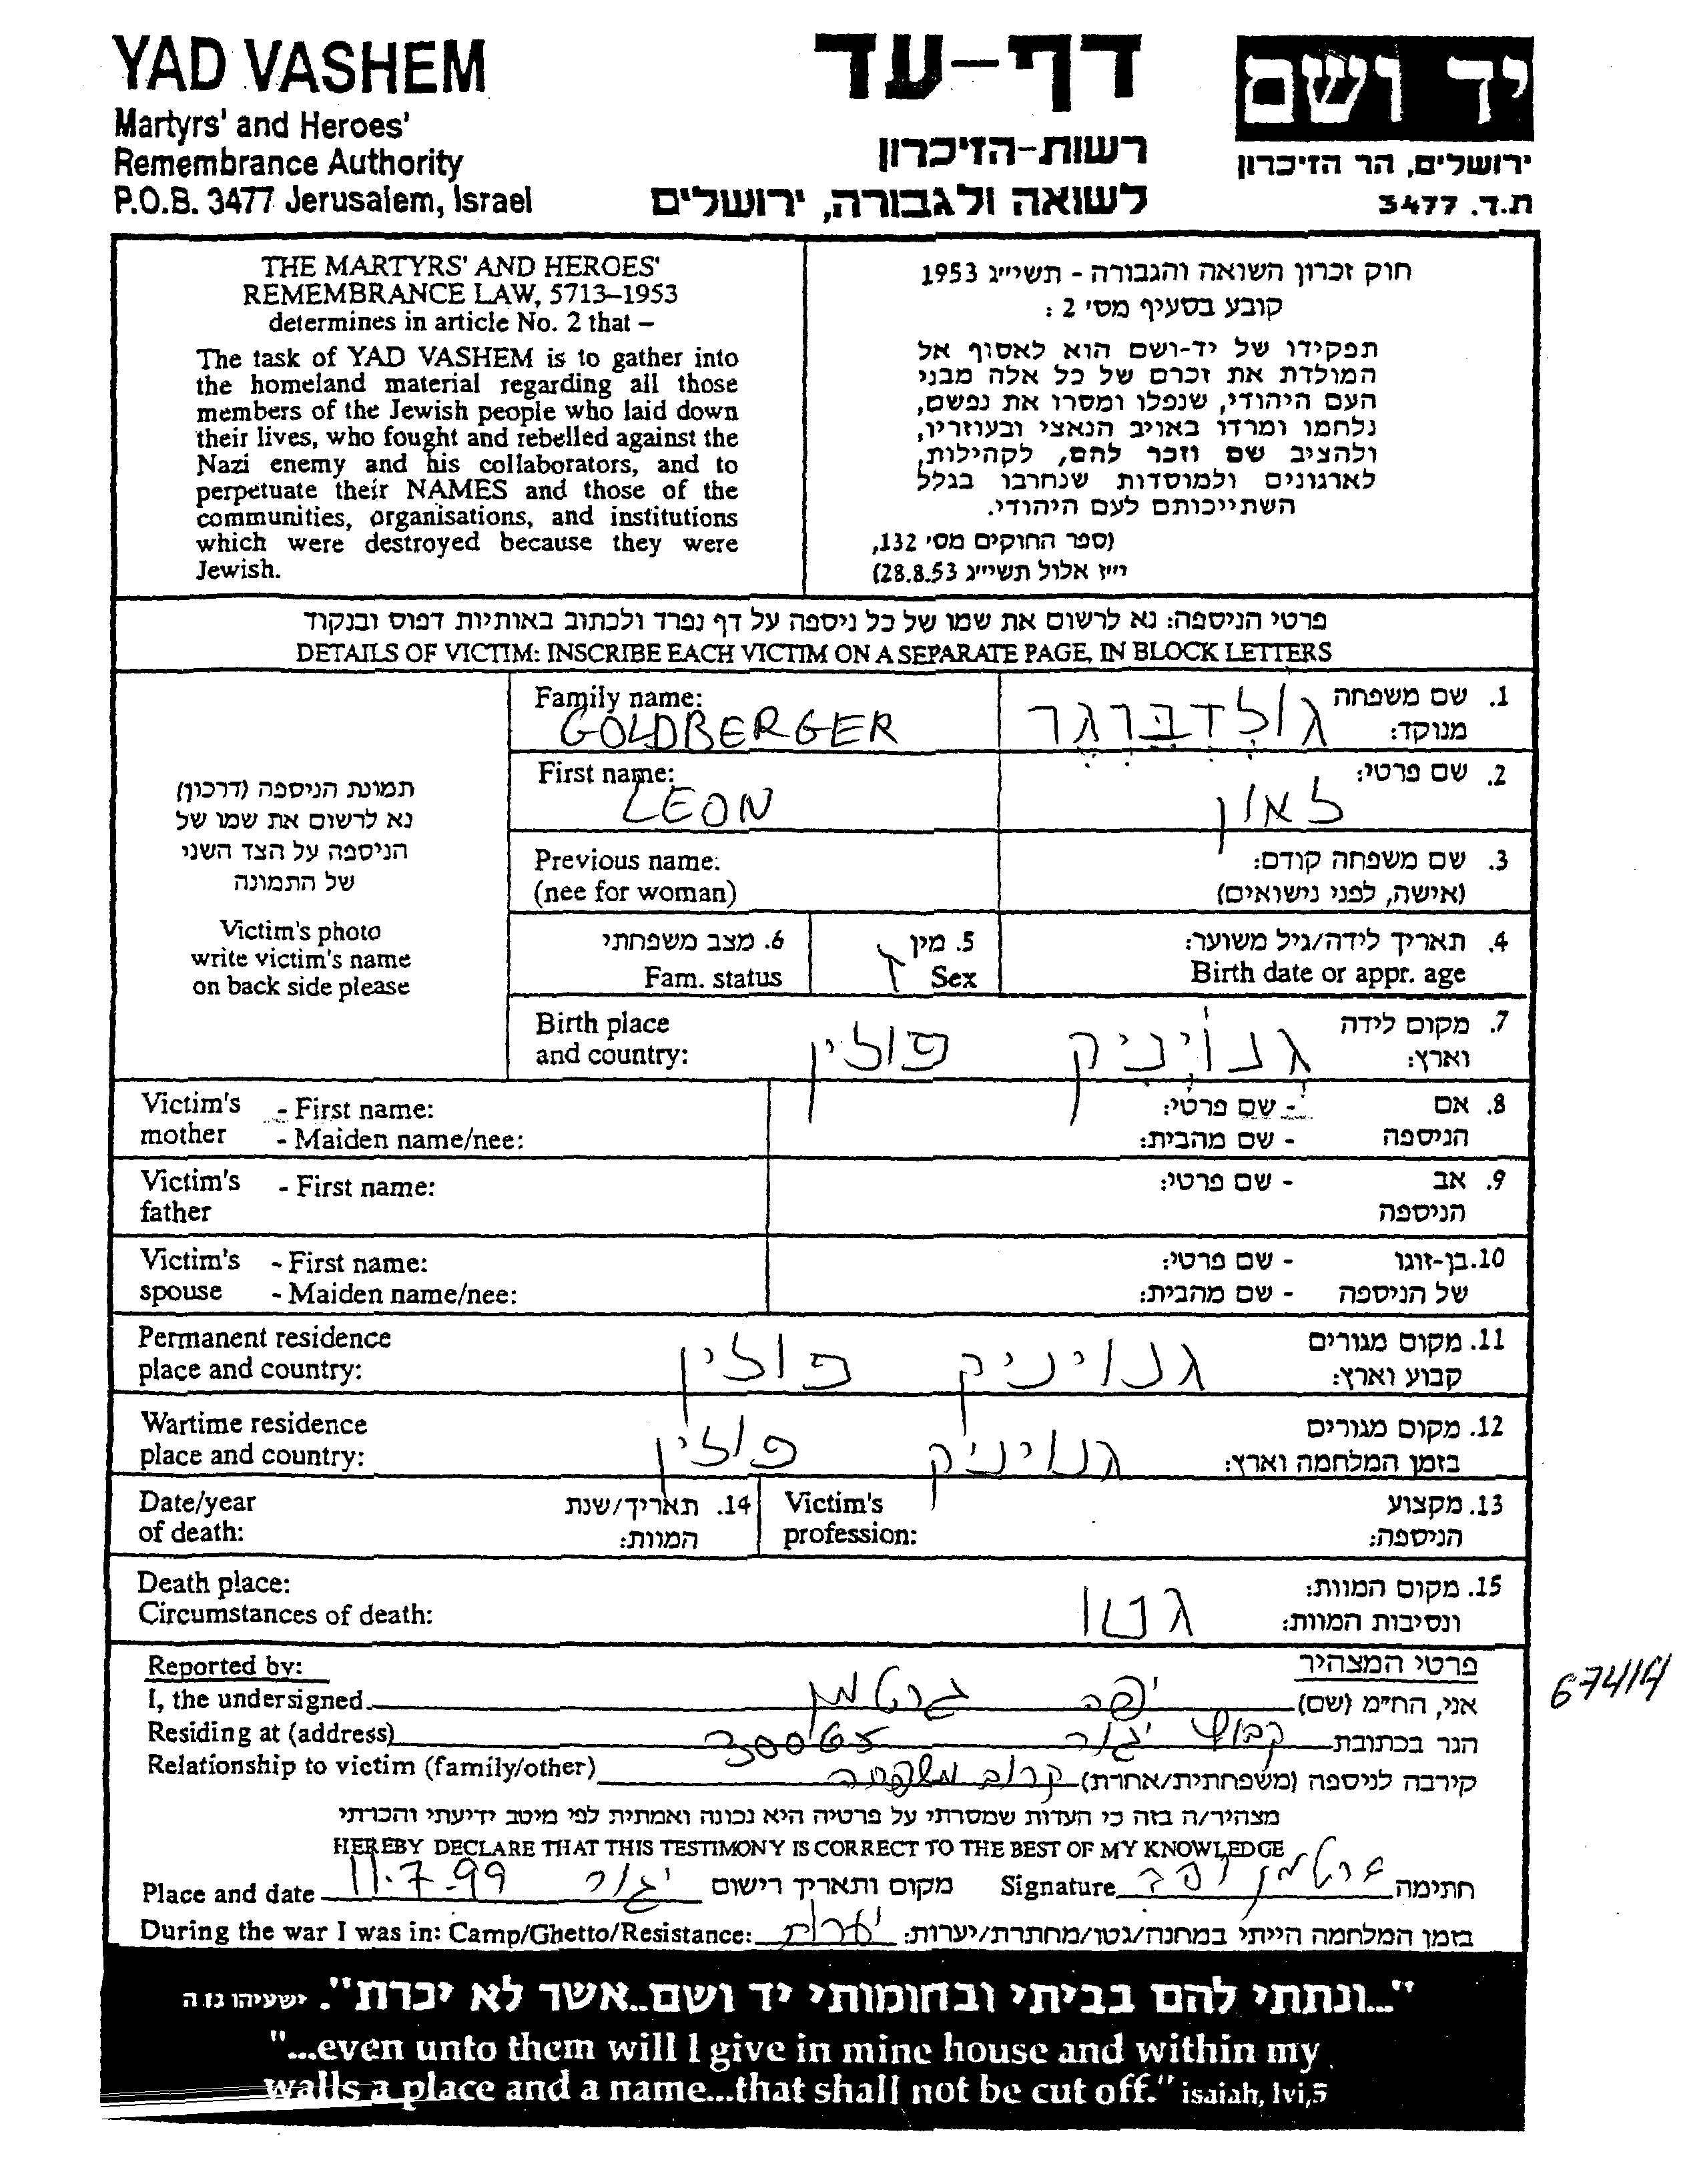 YAD VASHEM
Martyrs' and Heroes'
Remembrance Authority
P.O.B. 3477 Jerusalem, Israel
דף-עד
רשות-הזיכרון
לשואה ולגבורה, ירושלים
יד ושם
ירושלים, הר הזיכרון
ת.ד. 3477
THE MARTYRS' AND HEROES'
REMEMBRANCE LAW, 5713–1953
determines in article No. 2 that –
The task of YAD VASHEM is to gather into
the homeland material regarding all those
members of the Jewish people who laid down
their lives, who fought and rebelled against the
Nazi enemy and his collaborators, and to
perpetuate their NAMES and those of the
communities, organisations, and institutions
which were destroyed because they were
Jewish.
חוק זכרון השואה והגבורה - תשי״ג 1953
קובע בסעיף מס׳ 2 :
תפקידו של יד-ושם הוא לאסוף אל
המולדת את זכרם של כל אלה מבני
העם היהודי, שנפלו ומסרו את נפשם,
נלחמו ומרדו באויב הנאצי ובעוזריו,
ולהציב שם וזכר להם, לקהילות,
לארגונים ולמוסדות שנחרבו בגלל
השתייכותם לעם היהודי.
(ספר החוקים מס׳ 132,
י״ז אלול תשי״ג 28.8.53)
פרטי הניספה: נא לרשום את שמו של כל ניספה על דף נפרד ולכתוב באותיות דפוס ובנקוד
DETAILS OF VICTIM: INSCRIBE EACH VICTIM ON A SEPARATE PAGE, IN BLOCK LETTERS
תמונת הניספה (דרכון)
נא לרשום את שמו של
הניספה על הצד השני
של התמונה
Victim's photo
write victim's name
on back side please
1. שם משפחה מנוקד: גולדברגר
Family name: GOLDBERGER
2. שם פרטי: לאון
First name: LEON
3. שם משפחה קודם:
(אישה, לפני נישואים)
Previous name:
(nee for woman)
4. תאריך לידה/גיל משוער:
Birth date or appr. age
5. מין
Sex ז
6. מצב משפחתי
Fam. status
7. מקום לידה וארץ: גנויניק פולין
Birth place
and country:
8. אם הניספה - שם פרטי:
- שם מהבית:
Victim's mother - First name:
- Maiden name/nee:
9. אב הניספה - שם פרטי:
Victim's father - First name:
10. בן-זוגו של הניספה - שם פרטי:
- שם מהבית:
Victim's spouse - First name:
- Maiden name/nee:
11. מקום מגורים קבוע וארץ: גנויניק פולין
Permanent residence
place and country:
12. מקום מגורים בזמן המלחמה וארץ: גנויניק פולין
Wartime residence
place and country:
13. מקצוע הניספה:
Victim's profession:
14. תאריך/שנת המוות:
Date/year of death:
15. מקום המוות: ונסיבות המוות: גטו
Death place:
Circumstances of death:
פרטי המצהיר
Reported by:
אני, החי״מ (שם) יפה גרטמן
I, the undersigned
הגר בכתובת קבוץ יגור 30065
Residing at (address)
קירבה לניספה (משפחתית/אחרת) קרוב משפחה
Relationship to victim (family/other)
67414
מצהיר/ה בזה כי העדות שמסרתי על פרטיה היא נכונה ואמתית לפי מיטב ידיעתי והכרתי
HEREBY DECLARE THAT THIS TESTIMONY IS CORRECT TO THE BEST OF MY KNOWLEDGE
חתימה גרטמן יפה Signature
מקום ותאריך רישום יגור 11.7.99 Place and date
בזמן המלחמה הייתי במחנה/גטו/מחתרת/יערות: יערות
During the war I was in: Camp/Ghetto/Resistance:
"...ונתתי להם בביתי ובחומותי יד ושם..אשר לא יכרת". ישעיהו נו ה
"...even unto them will I give in mine house and within my
walls a place and a name...that shall not be cut off." isaiah, lvi,5